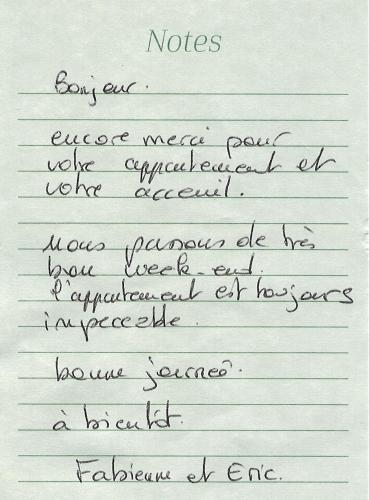 Notes
Bonjour.
encore merci pour
votre appartement et
votre acceuil.
Nous passons de très
bon week-end.
l'appartement est toujours
impeccable.
bonne journeé.
à bientôt.
Fabienne et Eric.